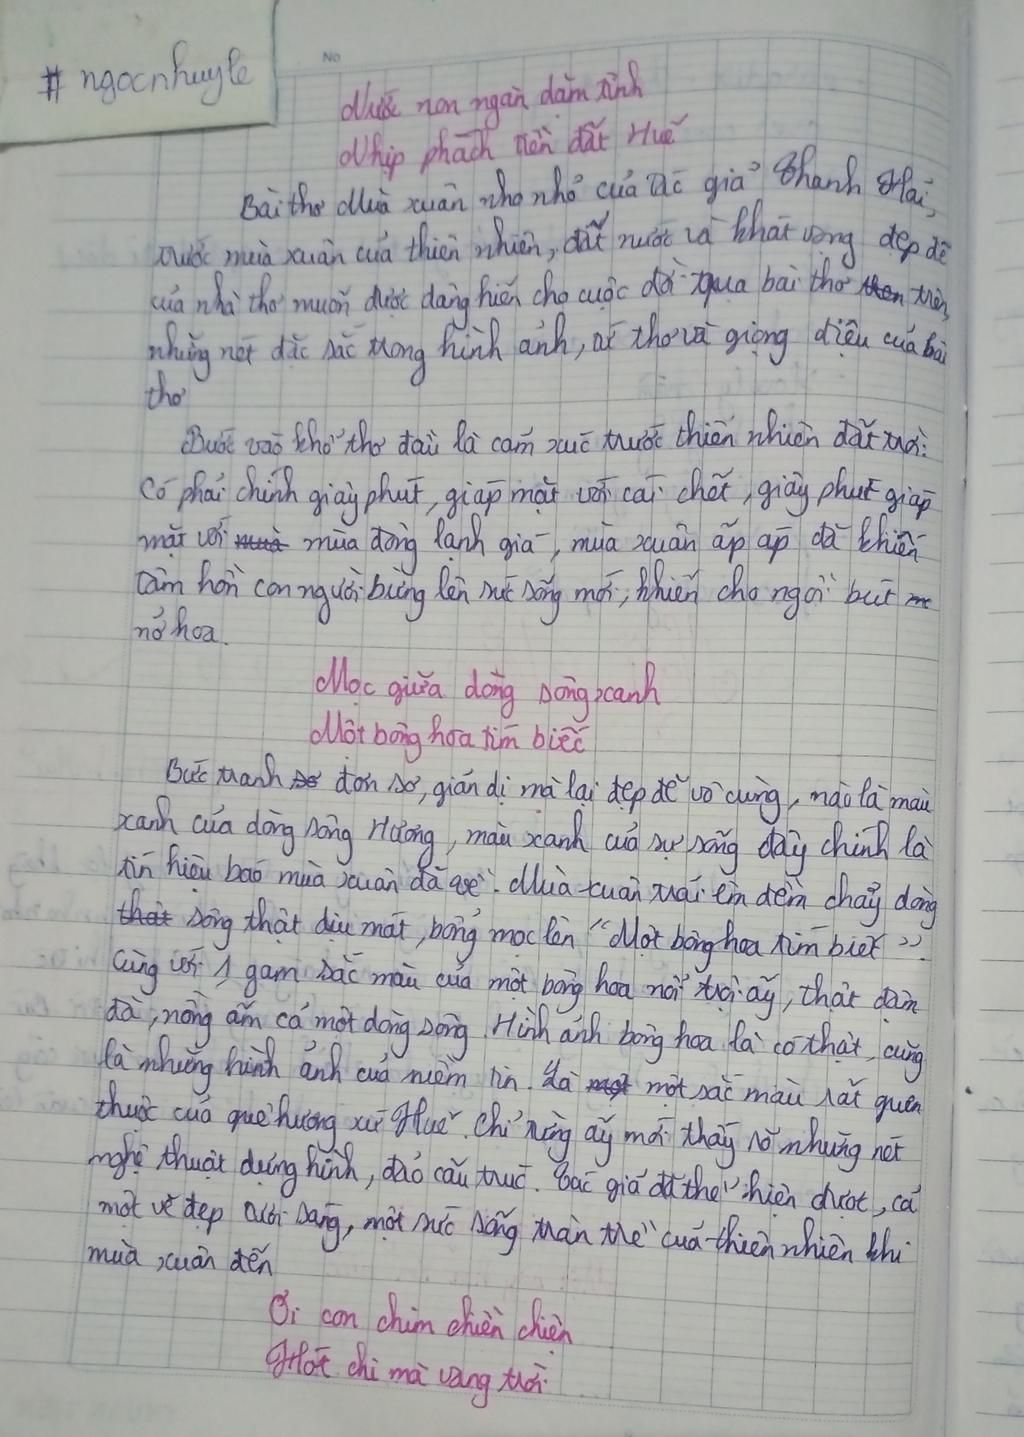 # ngocnhuyle
NO
Nước non ngàn dặm tình
Nhịp phách tiền đất Huế
Bài thơ Mùa xuân nho nhỏ của tác giả Thanh Hải,
trước mùa xuân của thiên nhiên, đất nước và khát vọng đẹp đẽ
của nhà thơ muốn được dâng hiến cho cuộc đời qua bài thơ trên,
những nét đặc sắc trong hình ảnh, tứ thơ và giọng điệu của bài
thơ
Bước vào khổ thơ đầu là cảm xúc trước thiên nhiên đất trời:
Có phải chính giây phút, giáp mặt với cái chết, giây phút giáp
mặt với mùa đông lạnh giá, mùa xuân ấp áp đã khiến
tâm hồn con người bừng lên sức sống mới, khiến cho ngòi bút
nở hoa.
Mọc giữa dòng sông xanh
Một bông hoa tím biếc
Bức tranh đơn sơ, giản dị mà lại đẹp đẽ vô cùng, nào là màu
xanh của dòng sông Hương, màu xanh của sự sống đây chính là
tín hiệu báo mùa xuân đã về. Mùa xuân trải êm đềm chảy dòng
sông thật dịu mát, bỗng mọc lên "Một bông hoa tím biết".
Cùng với 1 gam sắc màu của một bông hoa nổi trội ấy, thật đậm
đà, nồng ấm cả một dòng sông. Hình ảnh bông hoa là có thật, cũng
là những hình ảnh của niềm tin. Là một sắc màu rất quen
thuộc của quê hương xứ Huế. Chỉ từng ấy mới thấy rõ những nét
nghệ thuật dựng hình, đảo cấu trúc. Tác giả đã thể hiện được, cả
một vẻ đẹp tươi sáng, một sức sống tràn trề của thiên nhiên khi
mùa xuân đến
Ơi con chim chiền chiện
Hót chi mà vang trời